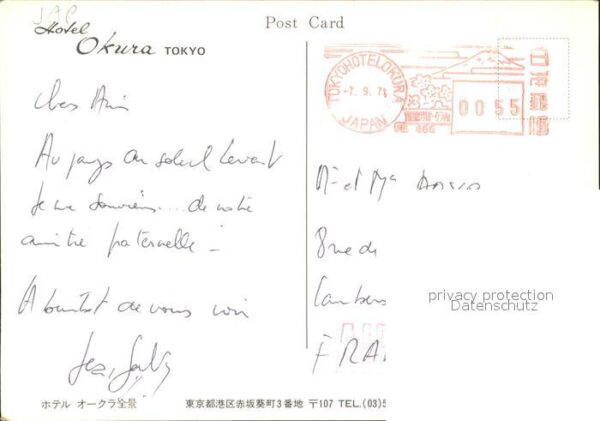 JAP
Post Card
Hotel
Okura TOKYO
TOKYO HOTEL OKURA
-7. 9. 74
JAPAN
0055
日本郵便
Chers Amis
Au pays du soleil levant
je me souviens.... de votre
amitié fraternelle -
A bientôt de vous voir
M. et
Rue de
FRA
privacy protection
Datenschutz
ホテル オークラ全景
東京都港区赤坂葵町3番地 〒107 TEL.(03)5